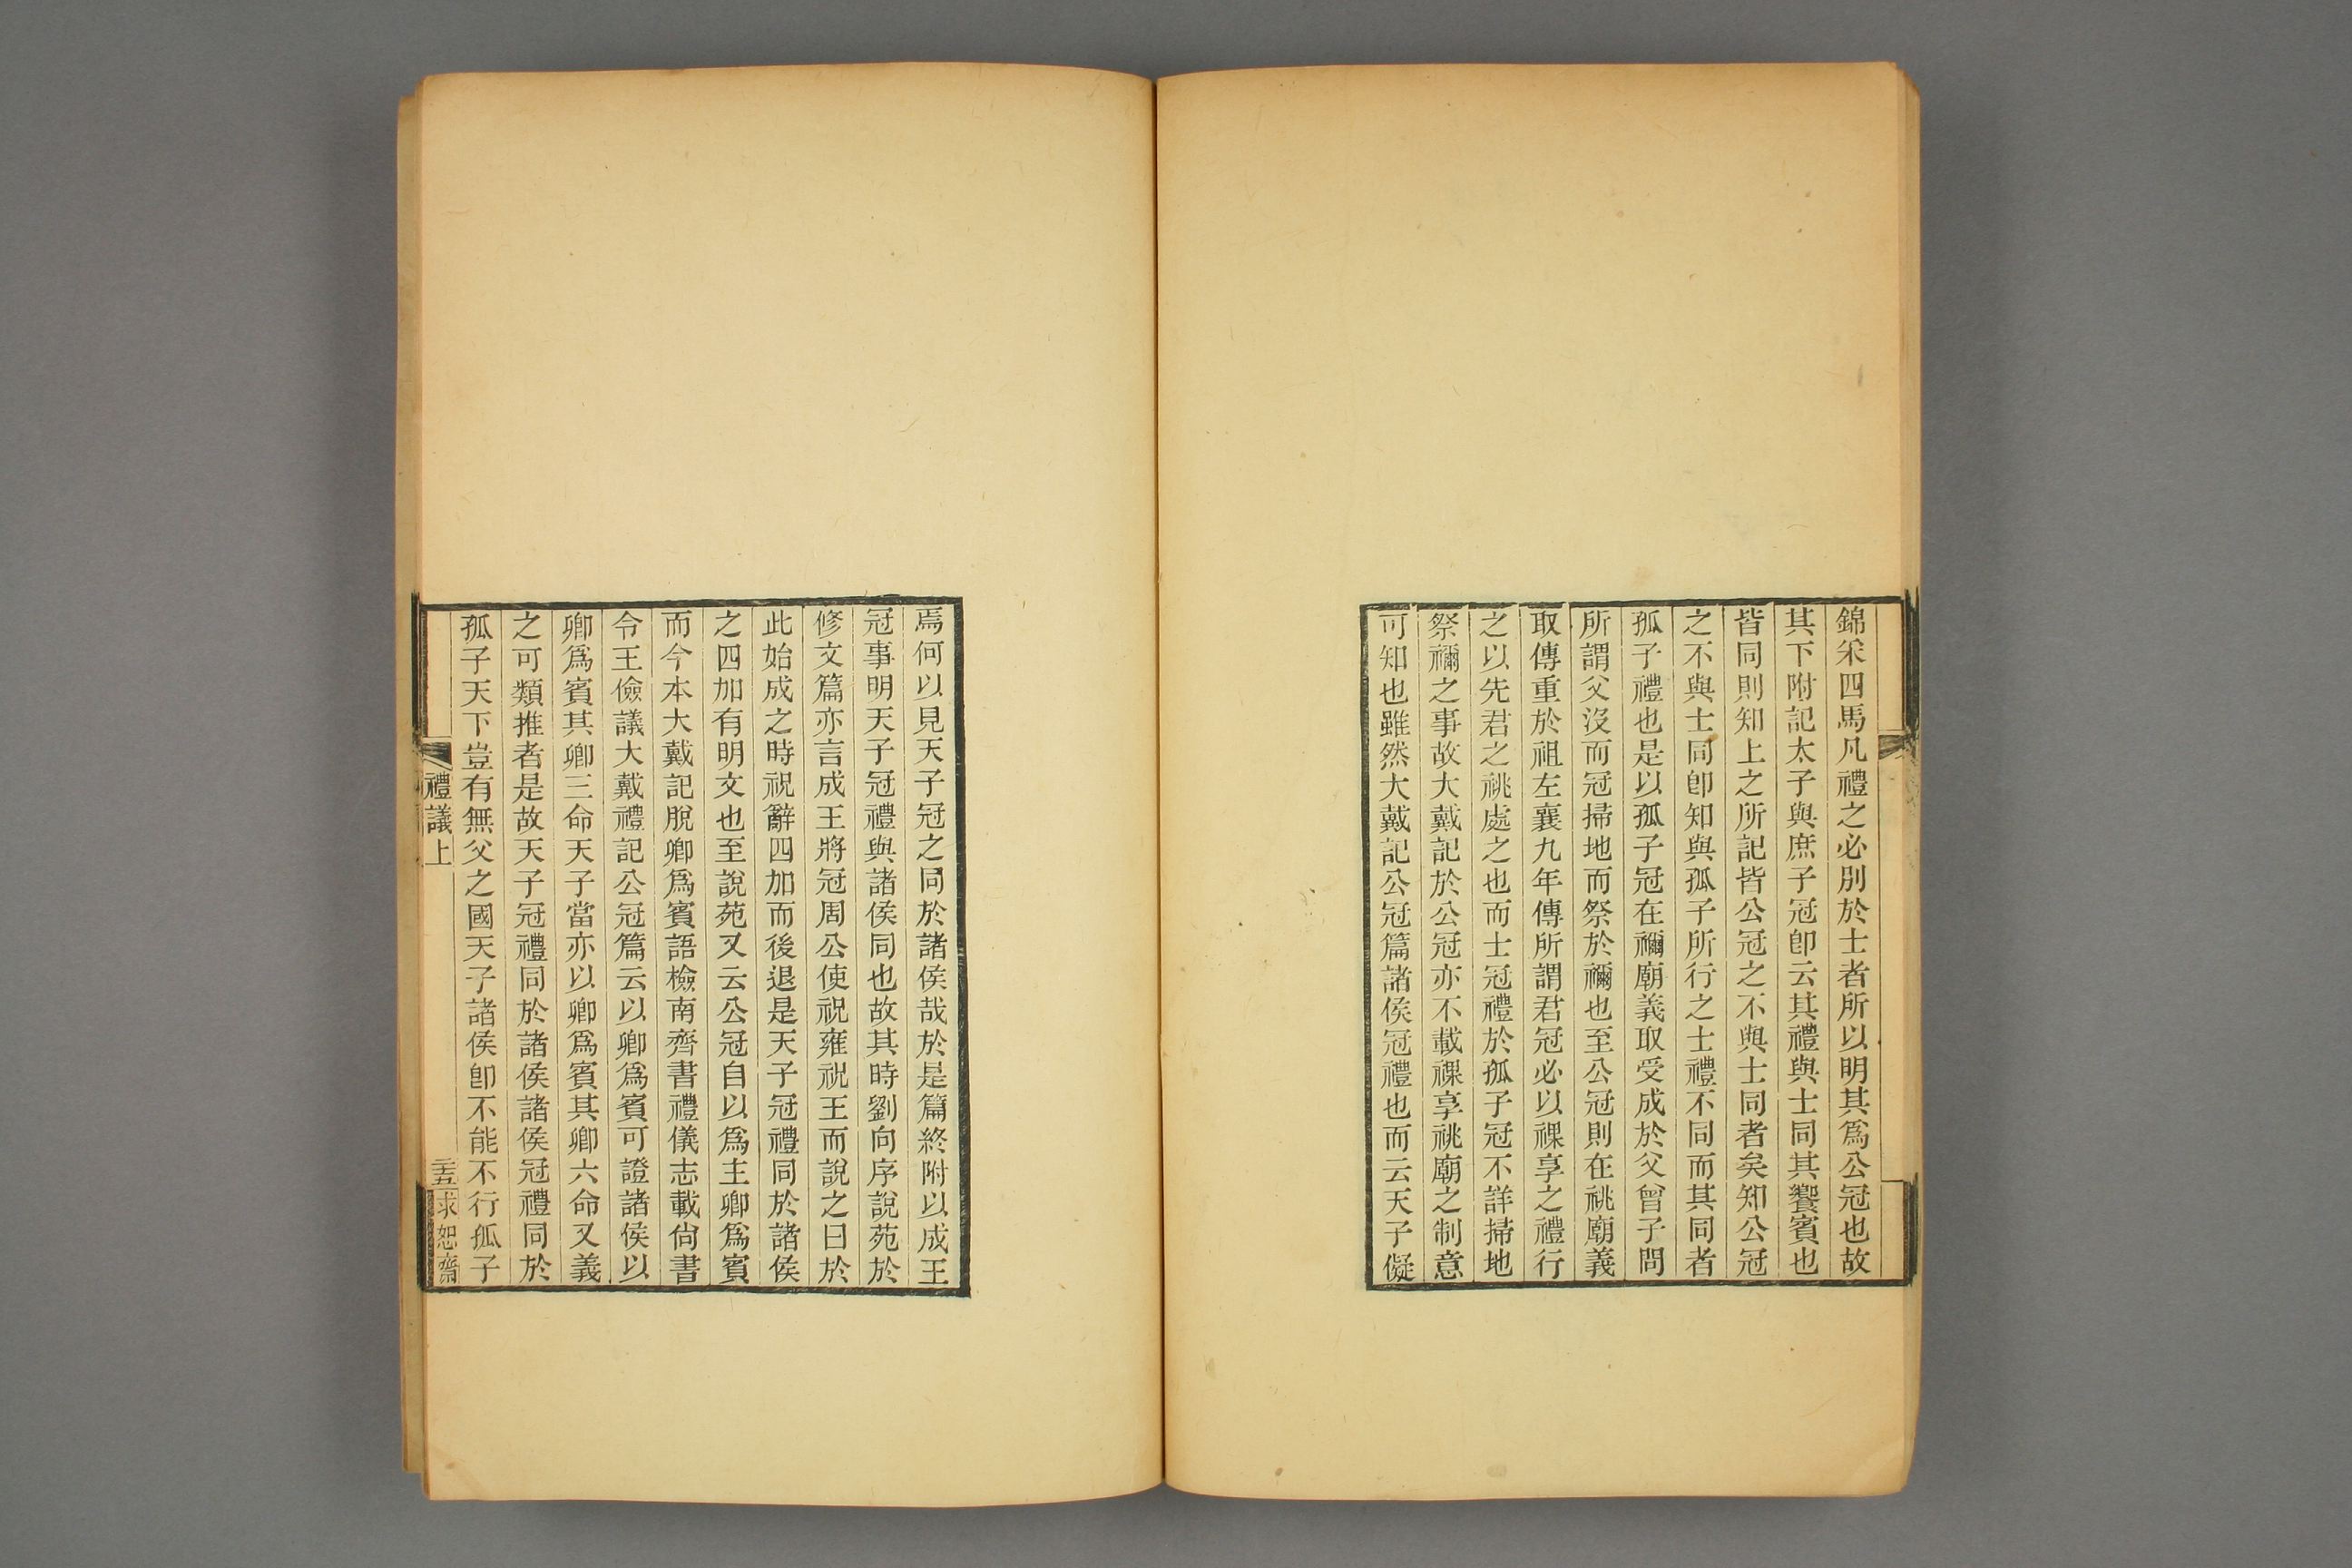 錦采四馬凡禮之必別於士者所以明其爲公冠也故
其下附記太子與庶子冠卽云其禮與士同其饗賓也
皆同則知上之所記皆公冠之不與士同者矣知公冠
之不與士同卽知與孤子所行之士禮不同而其同者
孤子禮也是以孤子冠在禰廟義取受成於父曾子問
所謂父沒而冠掃地而祭於禰也至公冠則在祧廟義
取傳重於祖左襄九年傳所謂君冠必以祼享之禮行
之以先君之祧處之也而士冠禮於孤子冠不詳掃地
祭禰之事故大戴記於公冠亦不載祼享祧廟之制意
可知也雖然大戴記公冠篇諸侯冠禮也而云天子儗
焉何以見天子冠之同於諸侯哉於是篇終附以成王
冠事明天子冠禮與諸侯同也故其時劉向序說苑於
修文篇亦言成王將冠周公使祝雍祝王而說之曰於
此始成之時祝辭四加而後退是天子冠禮同於諸侯
之四加有明文也至說苑又云公冠自以爲主卿爲賓
而今本大戴記脫卿爲賓語檢南齊書禮儀志載尙書
令王儉議大戴禮記公冠篇云以卿爲賓可證諸侯以
卿爲賓其卿三命天子當亦以卿爲賓其卿六命又義
之可類推者是故天子冠禮同於諸侯諸侯冠禮同於
孤子天下豈有無父之國天子諸侯卽不能不行孤子
禮議上
三五
求恕齋